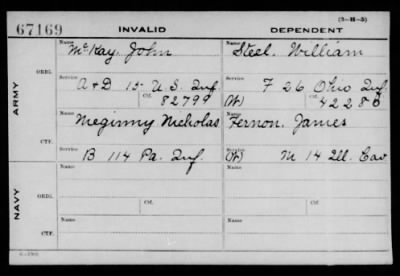 (3-H-3)
67169 INVALID DEPENDENT
ARMY
NAVY
ORIG.
CTF.
ORIG.
CTF.
Name McKay, John
Name Steel, William
Service A+D 15 U.S. Inf.
Service F 26 Ohio Inf
Ctf. 82799
(W) Ctf. 42280
Name Meginny Nicholas
Name Fernon, James
Service B 114 Pa. Inf.
Service (W) M 14 Ill. Cav
Name
Name
Service
Service
Ctf.
Ctf.
Name
Name
Service
Service